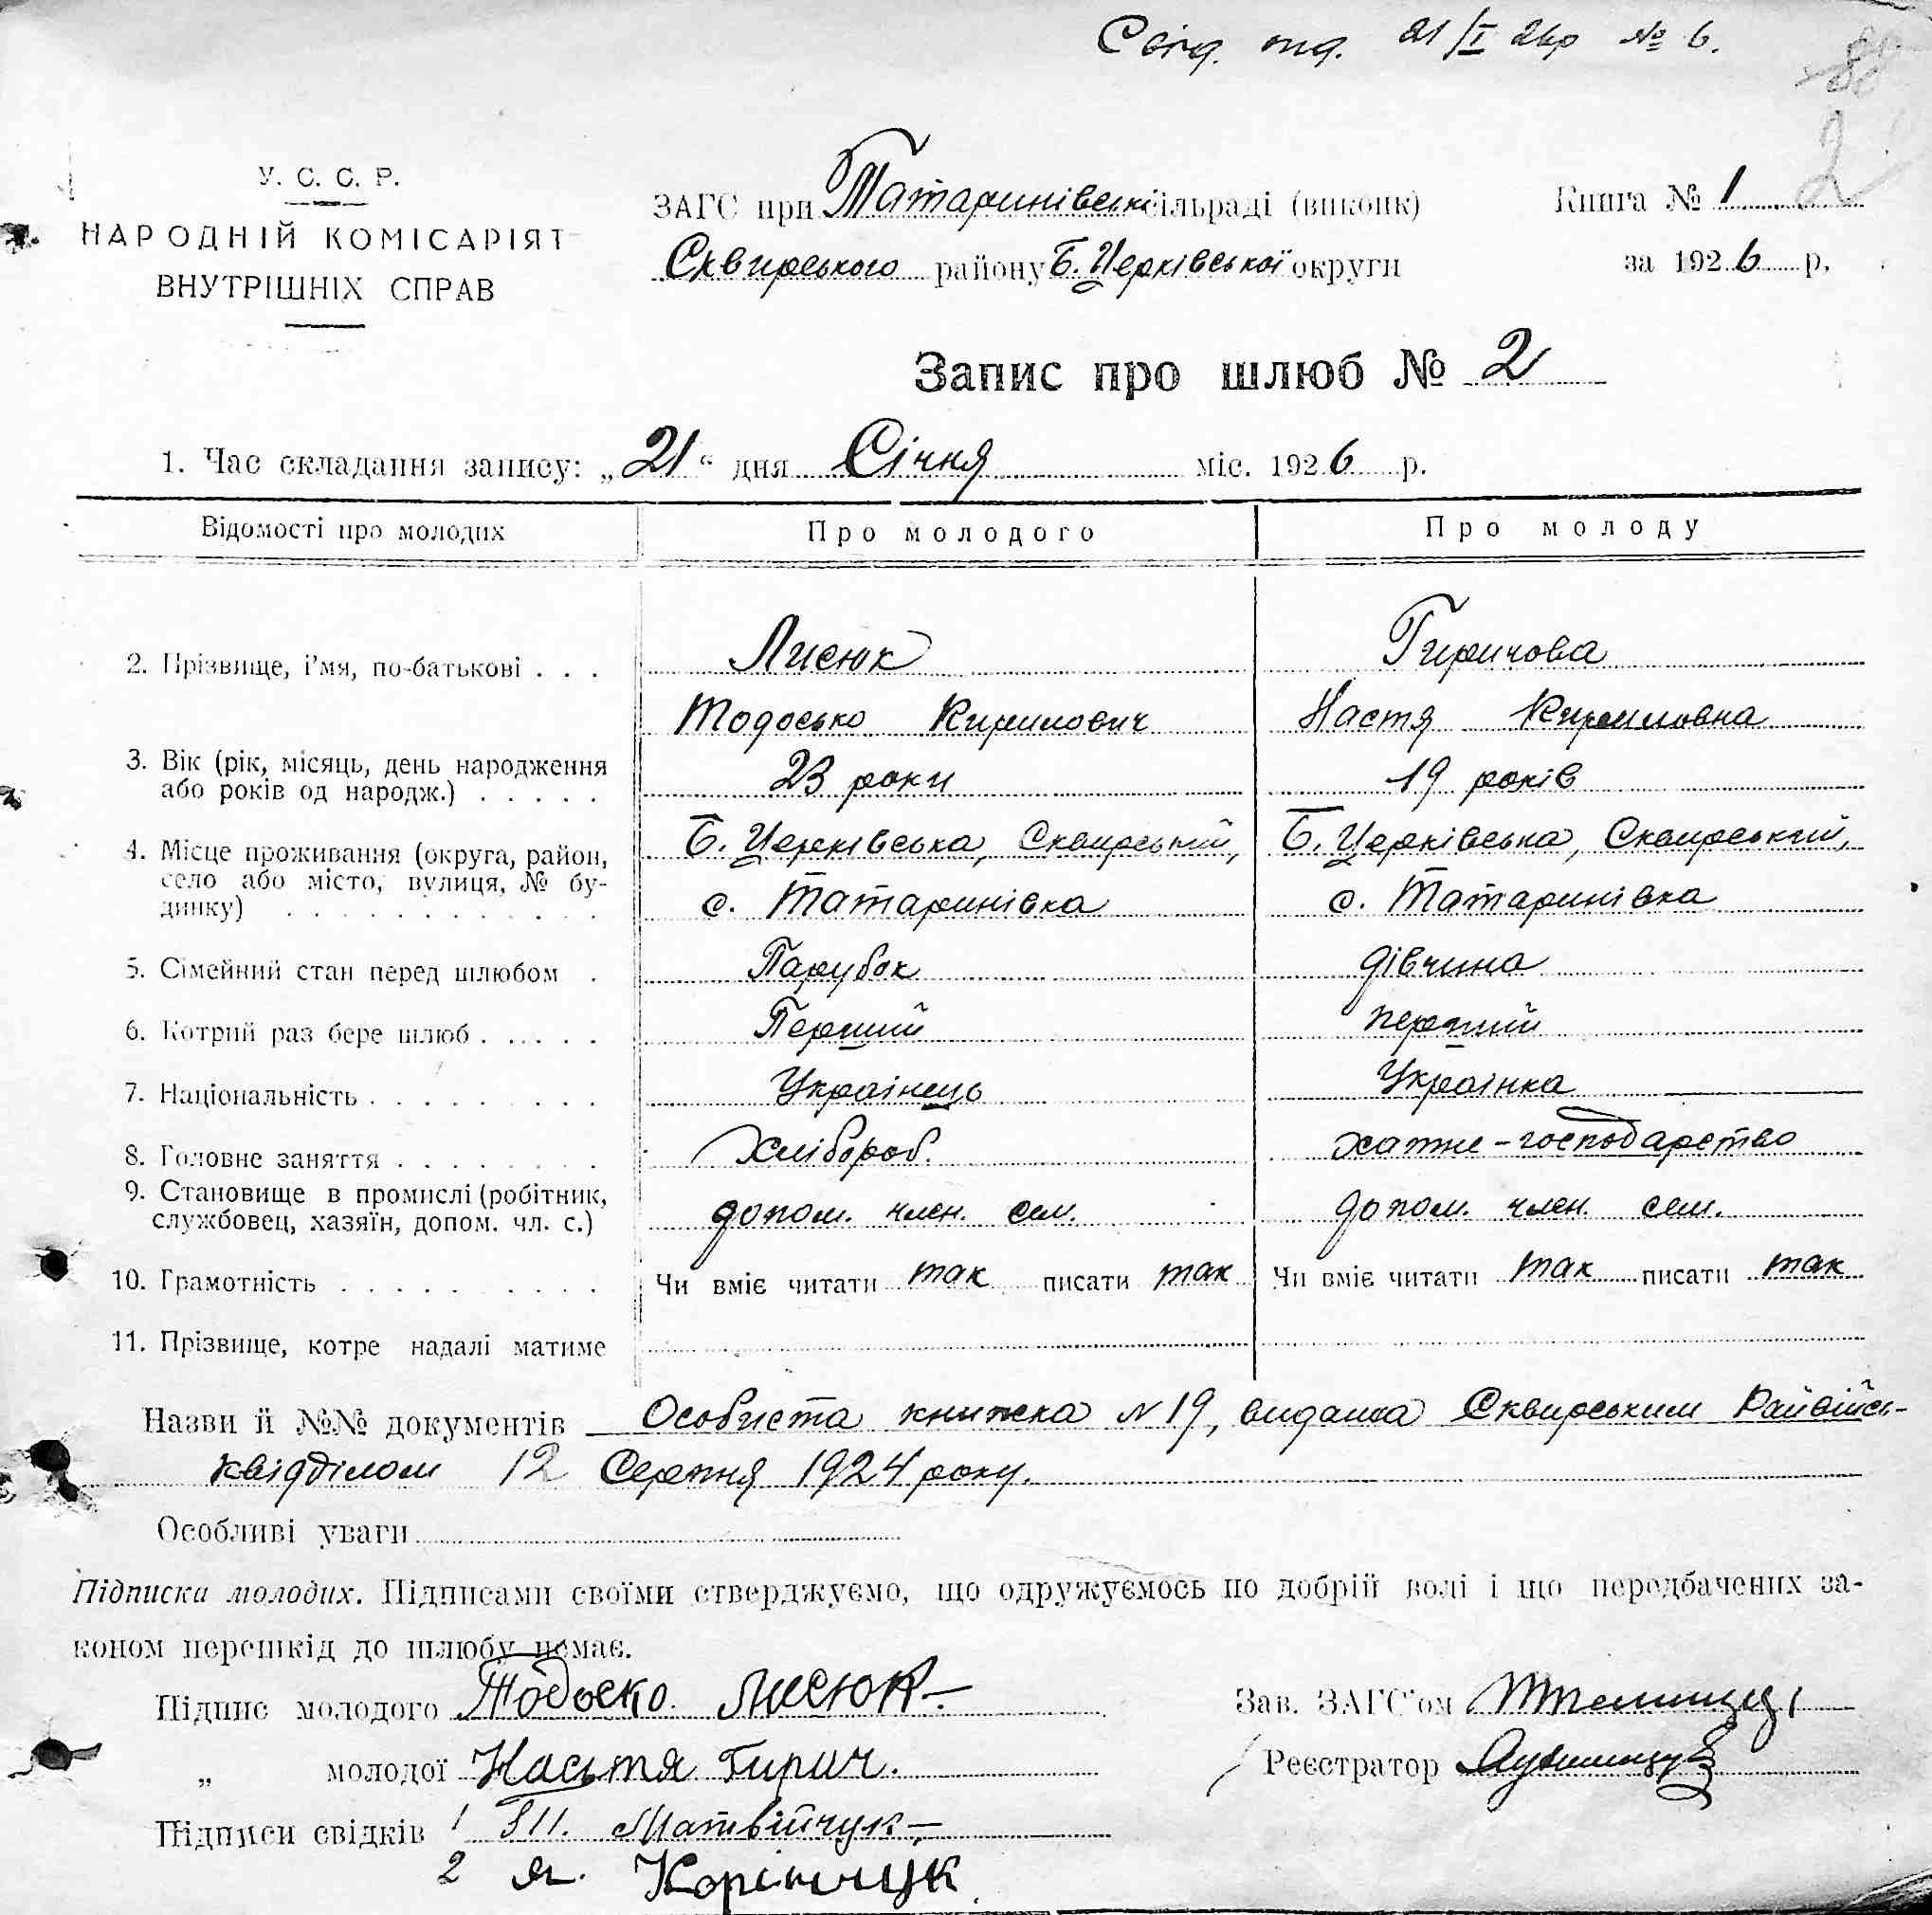 Свід. 21/I 26р № 6.
2
У. С. С. Р.
НАРОДНІЙ КОМІСАРІЯТ
ВНУТРІШНІХ СПРАВ
ЗАГС при Татаринівській сільраді (виконк)
Книга № 1
Сквирського району Б. Церківської округи
за 1926 р.
Запис про шлюб № 2
1. Час складання запису: „21“ дня Січня міс. 1926 р.
Відомості про молодих Про молодого Про молоду
2. Прізвище, і'мя, по-батькові . . . Лисюк Гиричова
Тодосько Кирилович Настя Кириловна
3. Вік (рік, місяць, день народження
або років од народж.) . . . . . 23 роки 19 років
4. Місце проживання (округа, район, Б. Церківська, Сквирський, Б. Церківська, Сквирський,
село або місто, вулиця, № бу-
динку) . . . . . . . . . . . . с. Татаринівка с. Татаринівка
5. Сімейний стан перед шлюбом . Парубок дівчина
6. Котрий раз бере шлюб . . . . . Перший перший
7. Національність . . . . . . . . . Українець Українка
8. Головне заняття . . . . . . . . Хлібороб. хатнє-господарство
9. Становище в промислі (робітник,
службовец, хазяїн, допом. чл. с.) допом. член. сем. допом. член. сем.
10. Грамотність . . . . . . . . . Чи вміє читати так писати так Чи вміє читати так писати так
11. Прізвище, котре надалі матиме
Назви й №№ документів Особиста книжка N 19, видана Сквирським Райвійсь-
квідділом 12 Серпня 1924 року.
Особливі уваги
Підписки молодих. Підписами своїми стверджуємо, що одружуємось по добрій волі і що передбачених за-
коном перешкід до шлюбу немає.
Підпис молодого Тодоско. Лисюк
Зав. ЗАГС'ом
„ молодої Насьтя Гирич.
Реєстратор
Підписи свідків 1 Матвійчук
2 Як. Корінчук